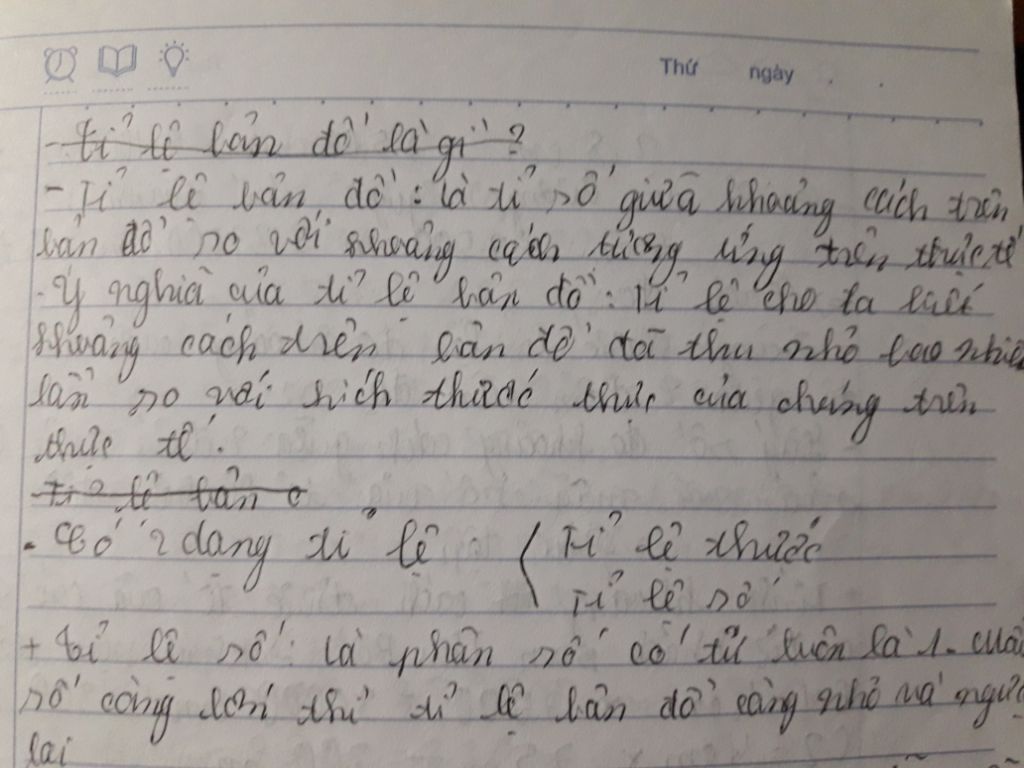 Thứ ngày
- Tỉ lệ bản đồ là gì?
- Tỉ lệ bản đồ: là tỉ số giữa khoảng cách trên
bản đồ so với khoảng cách tương ứng trên thực tế
- Ý nghĩa của tỉ lệ bản đồ: Tỉ lệ cho ta biết
khoảng cách trên bản đồ đã thu nhỏ bao nhiêu
lần so với kích thước thực của chúng trên
thực tế.
tỉ lệ bản
- Có 2 dạng tỉ lệ: Tỉ lệ thước
Tỉ lệ số
+ Tỉ lệ số: là phân số có tử luôn là 1. Mẫu
số càng lớn thì tỉ lệ bản đồ càng nhỏ và ngược
lại